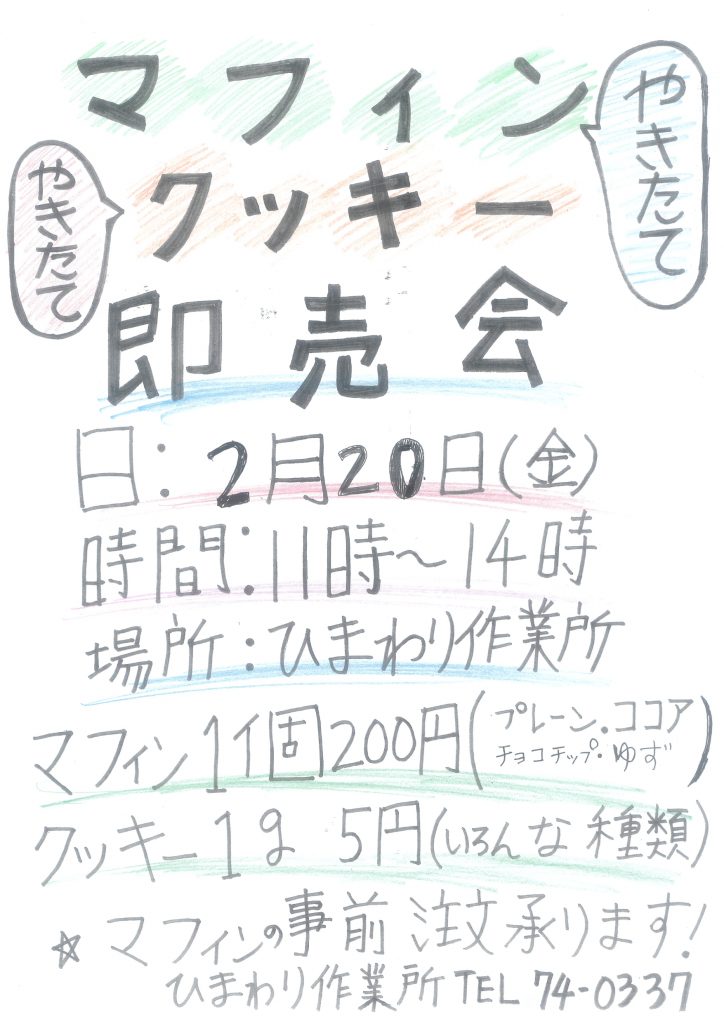 マフィン
やきたて
クッキー
やきたて
即売会
日:2月20日(金)
時間:11時〜14時
場所:ひまわり作業所
マフィン1個200円(プレーン.ココア
チョコチップ・ゆず)
クッキー1g 5円(いろんな種類)
☆マフィンの事前注文承ります!
ひまわり作業所TEL 74-0337